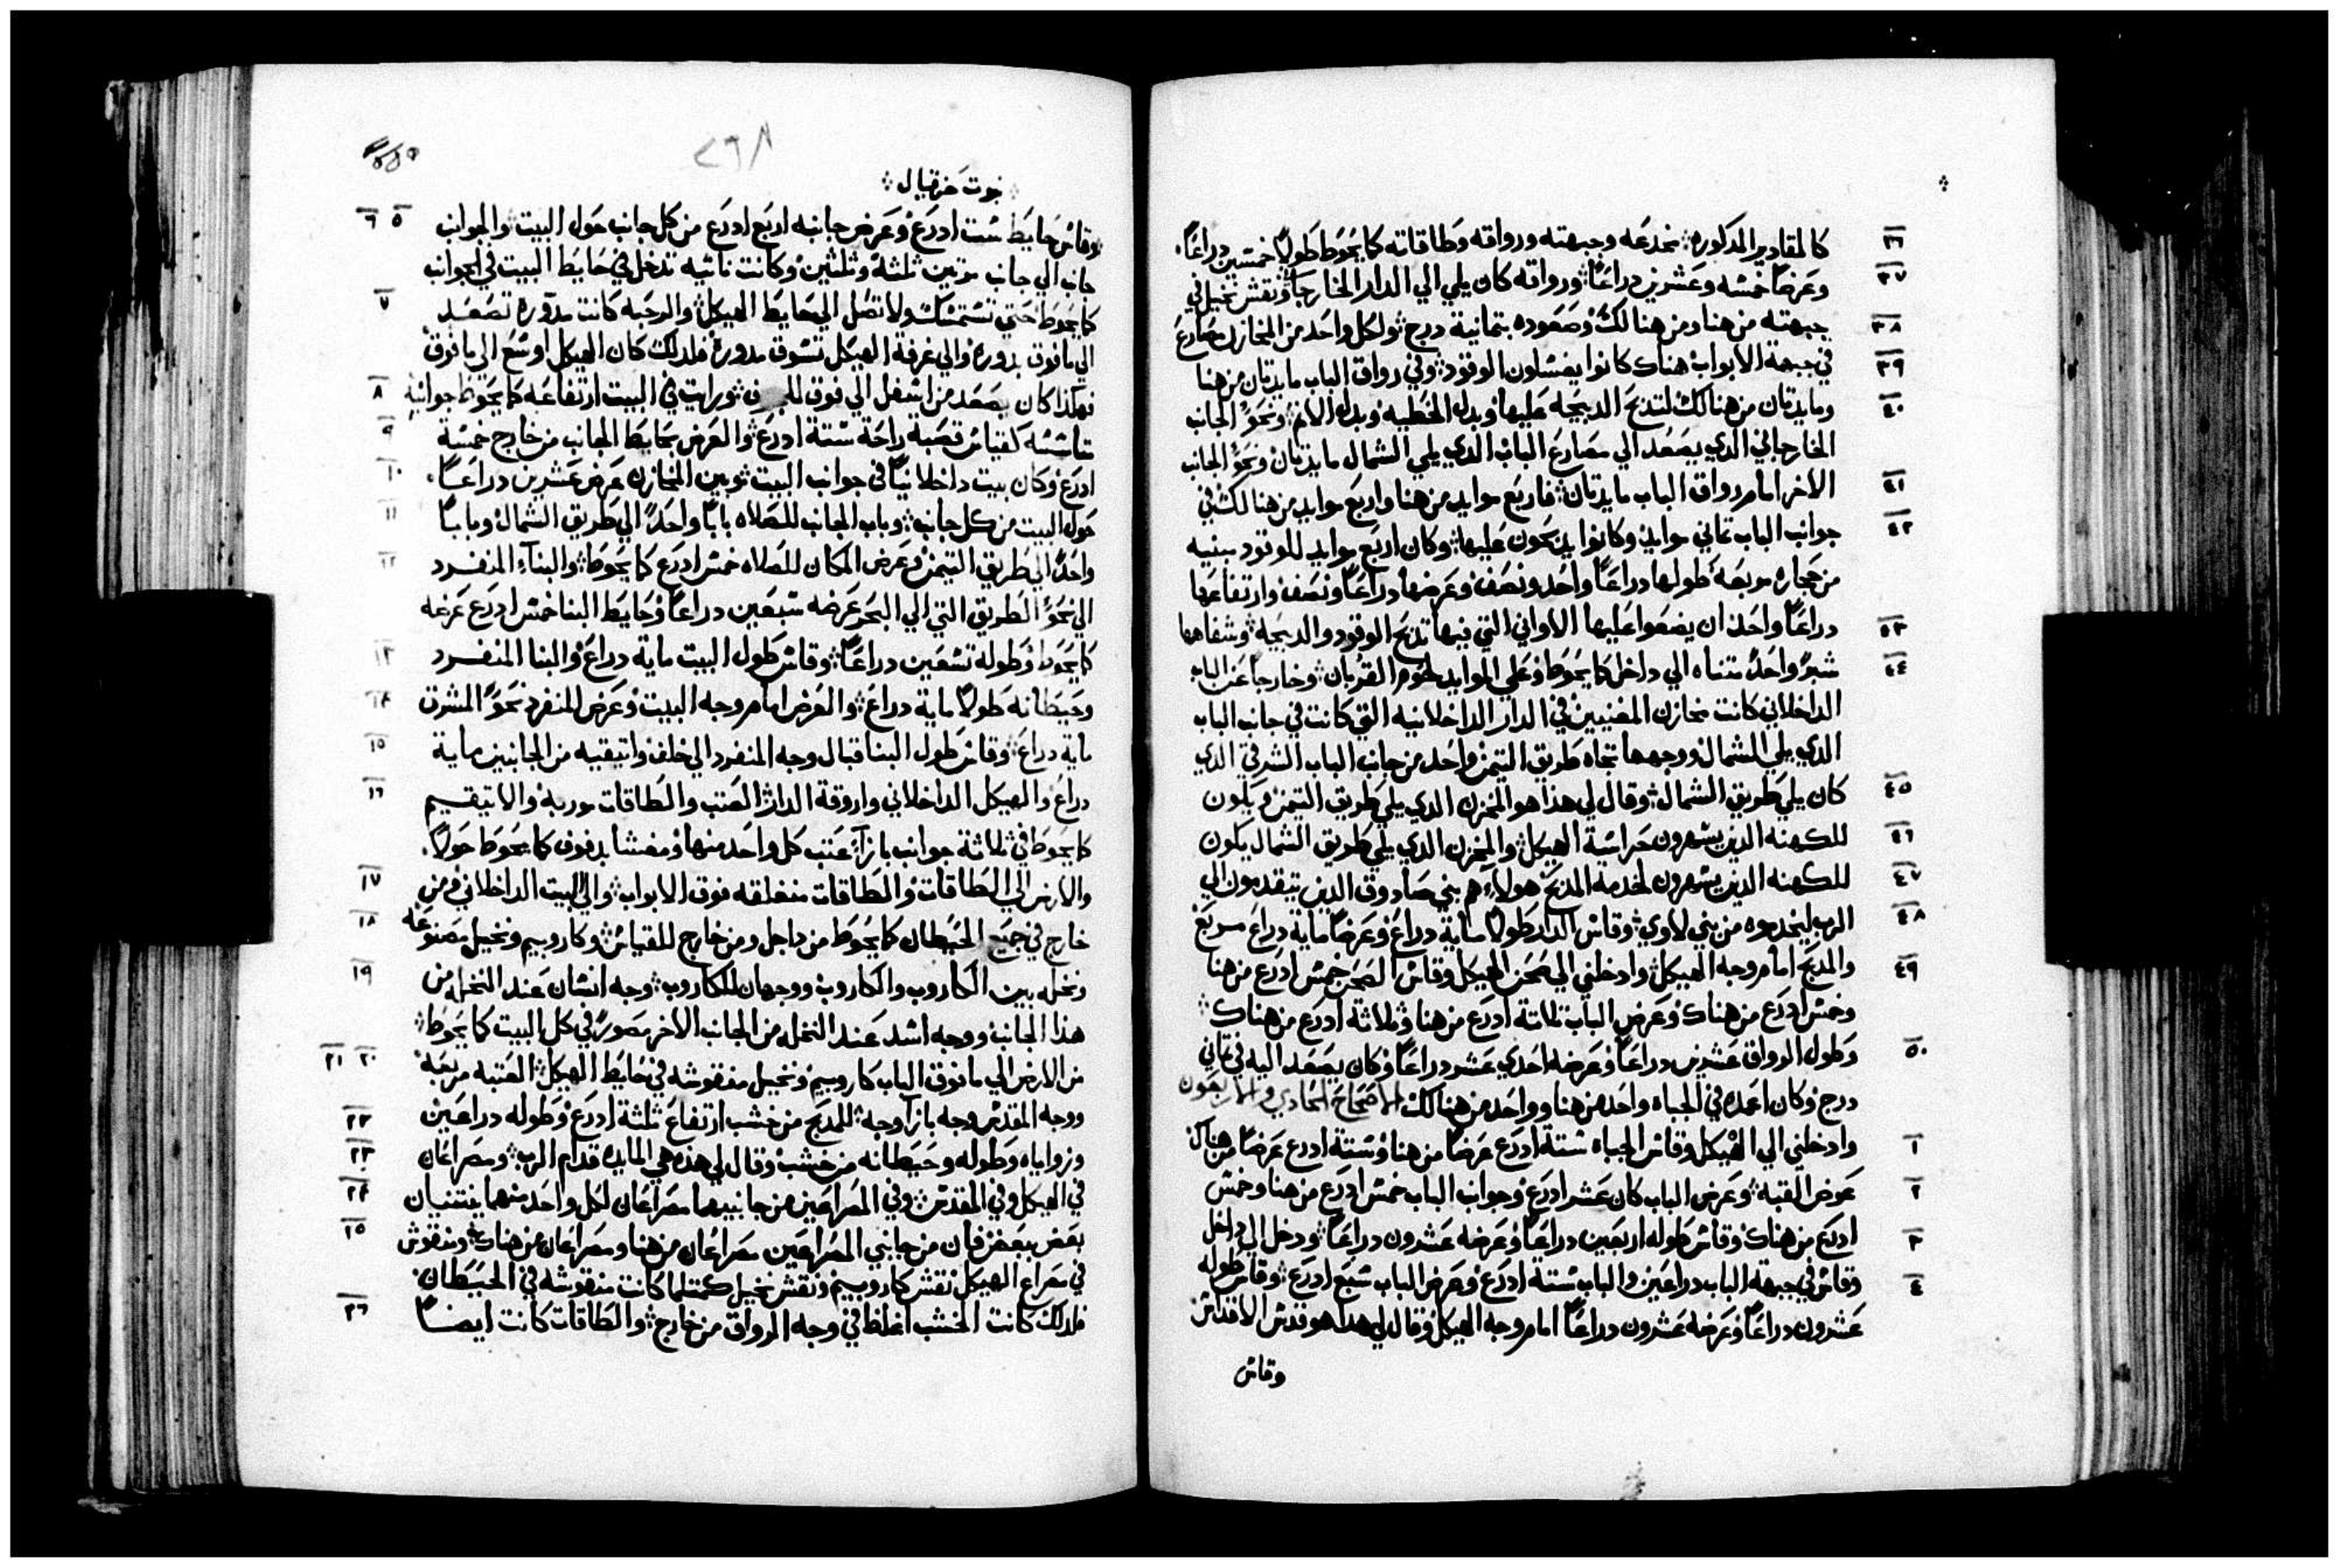 ٣٦ كالمقادير المدكوره ܀ مخدعه وجبهته ورواقه وطاقاته كما يحوط طولاً خمسين دراعاً.
٣٧ وعرضاً خمسه وعشرين دراعاً ܀ ورواقه كان يلي الي الدار الخارجا ܀ ونقش نخيل في
٣٨ جبهته من هنا ومن هنالك وصعوده بتمانية درج ܀ ولكل واحد من المخازن مصارع
٣٩ في جبهة الابواب هناك كانوا يغسلون الوقود ܀ وفي رواق الباب مايدتان من هنا
٤٠ ومايدتان من هنالك لتدبح الدبيحة عليها وبدل الخطيه وبدل الاثم ܀ ونحو الجانب
الخارجاني الدي يصعد الي مصارع الباب الدي يلي الشمال مايدتان ونحو الجانب
٤١ الاخر امام رواق الباب مايدتان ܀ فاربع موايد من هنا واربع موايد من هنالك في
٤٢ جوانب الباب تماني موايد وكانوا يدبحون عليها ܀ وكان اربع موايد للوقود مبنيه
من حجاره مربعه طولها دراعاً واحد ونصف وعرضها دراعاً ونصف وارتفاعها
٤٣ دراعاً واحد ان يضعوا عليها الاواني التي فيها تدبح الوقود والدبيحة ܀ وشفاهها
٤٤ شبرً واحدً متناه الي داخل كما يحوط وعلي الموايد لحوم القربان ܀ وخارجاً عن الباب
الداخلاني كانت مخازن المغنيين في الدار الداخلانيه التي كانت في جانب الباب
الدي يلي للشمال ووجهها تجاه طريق التيمن واحد من جانب الباب الشرقي الدي
٤٥ كان يلي طريق الشمال ܀ وقال لي هذا هو المخزن الدي يلي طريق التيمن ويكون
٤٦ للكهنه الذين يسهرون حراسة الهيكل ܀ والمخزن الدي يلي طريق الشمال يكون
٤٧ للكهنه الذين يسهرون لخدمة المدبح هولاء هم بني صادوق الدين يتقدمون الي
٤٨ الرب ليخدموه من بني لاوي ܀ وقاس الدار طولاً ماية دراع وعرضاً ماية دراع مربع
٤٩ والمدبح امام وجه الهيكل ܀ وادخلني الي صحن الهيكل وقاس الصحن خمس ادرع من هنا
وخمس ادرع من هناك وعرض الباب تلاتة ادرع من هنا وثلاثة ادرع من هناك ܀
٥٠ وطول الرواق عشرين دراعاً وعرضه احدي عشر دراعاً وكان يصعد اليه في تماني
درج وكان اعمده في الجباه واحد من هنا وواحد من هنالك الاصحاح الحادي والاربعون
١ وادخلني الي الهيكل وقاس الجباه ستة ادرع عرضاً من هنا وستة ادرع عرضاً من هناك
٢ عرض القبه ܀ وعرض الباب كان عشر ادرع وجوانب الباب خمس ادرع من هنا وخمس
٣ ادرع من هناك وقاس طوله اربعين دراعاً وعرضه عشرون دراعاً ܀ ودخل الي داخل
٤ وقاس في جبهة الباب دراعين والباب ستة ادرع وعرض الباب سبع ادرع ܀ وقاس طوله
عشرون دراعاً وعرضه عشرون دراعاً امام وجه الهيكل وقال لي هدا هو قدس الاقداس
وقاس
٢٩٨
܀ نبوت حزقيال ܀
٥ ٦ وقاس حايط ست ادرع وعرض جانبه اربع ادرع من كل جانب حول البيت ܀ والجوانب
جانب الي جانب مرتين ثلثة وثلثين وكانت ناتيه تدخل في حايط البيت في الجوانب
٧ كما يحوط حتي تستمسك ولا تصل الي حايط الهيكل ܀ والرحبه كانت مدوره تصعد
الي ما فوق بدوره والي غرفة الهيكل تسوق مدورة فلدلك كان الهيكل اوسع الي ما فوق
٨ فهكذا كان يصعد من اسفل الي فوق للجوف ܀ ورايت في البيت ارتفاعه كما يحوط جوانبه
٩ متاسسه كقياس قصبه راحة ستة ادرع ܀ والعرض بحايط الجانب من خارج خمسة
١٠ ادرع وكان بيت داخلانياً في جوانب البيت ܀ وبين المخازن عرض عشرين دراعاً.
١١ حول البيت من كل جانب ܀ وباب الجانب للصلاه باباً واحدً الي طريق الشمال وباباً
١٢ واحدً الي طريق التيمن وعرض المكان للصلاه خمس ادرع كما يحوط ܀ والبنآء المنفرد
الي نحو الطريق التي الي البحر عرضه سبعين دراعاً وحايط البنا خمس ادرع عرضه
١٣ كما يحوط وطوله تسعين دراعاً ܀ وقاس طول البيت ماية دراع والبنا المنفرد
١٤ وحيطانه طولاً ماية دراع ܀ والعرض امام وجه البيت وعرض المنفرد نحو المشرق
١٥ ماية دراع ܀ وقاس طول البنا قبال وجه المنفرد الي خلف واتيقيه من الجانبين ماية
١٦ دراع والهيكل الداخلاني واروقة الدار ܀ العتب والطاقات موربه والاتيقيم
كما يحوط في ثلاثة جوانب بازآء عتب كل واحد منها ومغشا بدفوف كما يحوط حولاً.
١٧ والارض الي الطاقات والطاقات منغلقه فوق الابواب ܀ والي البيت الداخلاني ومن
١٨ خارج في جميع الحيطان كما يحوط من داخل ومن خارج للقياس ܀ وكاروبيم ونخيل مصنوعه
١٩ ونخله بين الكاروب والكاروب ووجهان للكاروب ܀ وجه انسان عند النخله من
هذا الجانب ووجه اسد عند النخله من الجانب الاخر مصوره في كل البيت كما يحوط ܀
٢٠ ٢١ من الارض الي ما فوق الباب كاروبيم ونخيل منقوشه في حايط الهيكل ܀ العتبه مربعه
٢٢ ووجه المقدس وجه بازآ وجه ܀ للمدبح من خشب ارتفاع ثلثة ادرع وطوله دراعين
٢٣ وزواياه وطوله وحيطانه من خشب وقال لي هذه هي المايده قدام الرب ܀ ومصراعان
٢٤ في الهيكل وفي المقدس ܀ وفي المصراعين من جانبيهما مصراعان لكل واحد منهما ينتنيان
٢٥ بعض ببعض فان من جانبي المصراعين مصراعان من هنا ومصراعان من هناك ܀ ومنقوش
في مصراع الهيكل نقش كاروبيم ونقش نخيل كمتلما كانت منقوشه في الحيطان.
٢٦ فلدلك كانت الخشب اغلظ في وجه الرواق من خارج ܀ والطاقات كانت ايضاً